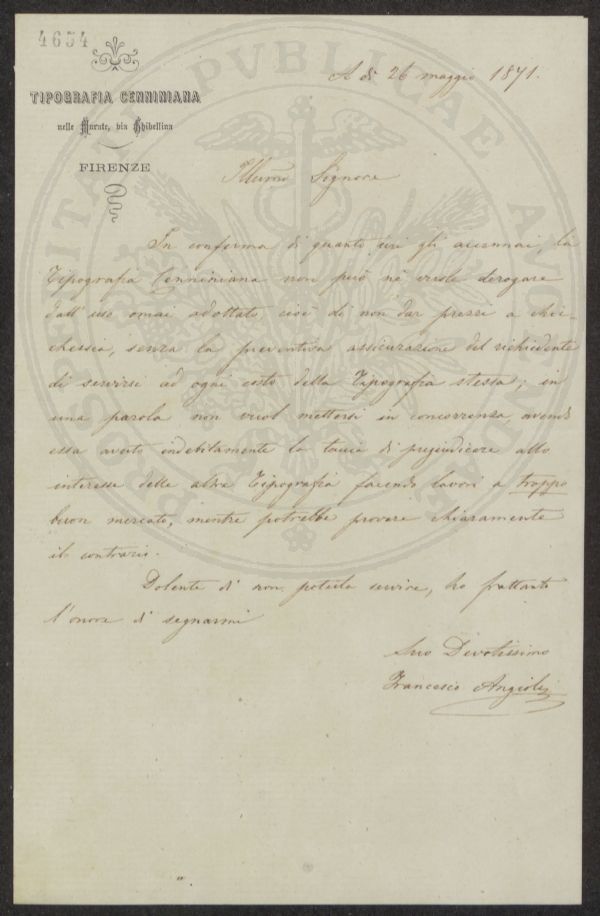 4654
TIPOGRAFIA CENNINIANA
nelle Murate, via Ghibellina
FIRENZE
A dì 26 maggio 1871.
Illumo Signore
In conferma di quanto ieri gli accennai, la
Tipografia Cenniniana non può nè vuole derogare
dall'uso omai adottato, cioè di non dar prezzi a chic-
chessia, senza la preventiva assicurazione del richiedente
di servirsi ad ogni costo della Tipografia stessa; in
una parola non vuol mettersi in concorrenza, avendo
essa avuto indebitamente la taccia di pregiudicare allo
interesse delle altre Tipografie facendo lavori a troppo
buon mercato, mentre potrebbe provare chiaramente
il contrario.
Dolente di non poterla servire, ho frattanto
l'onore di segnarmi
Suo Devotissimo
Francesco Angioli
PVBLICAE